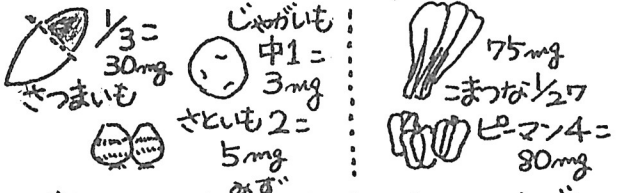 1/3=
30mg
さつまいも
じゃがいも
中1=
3mg
さといも2=
5mg
みず
75mg
こまつな1/2ワ
ピーマン4=
80mg